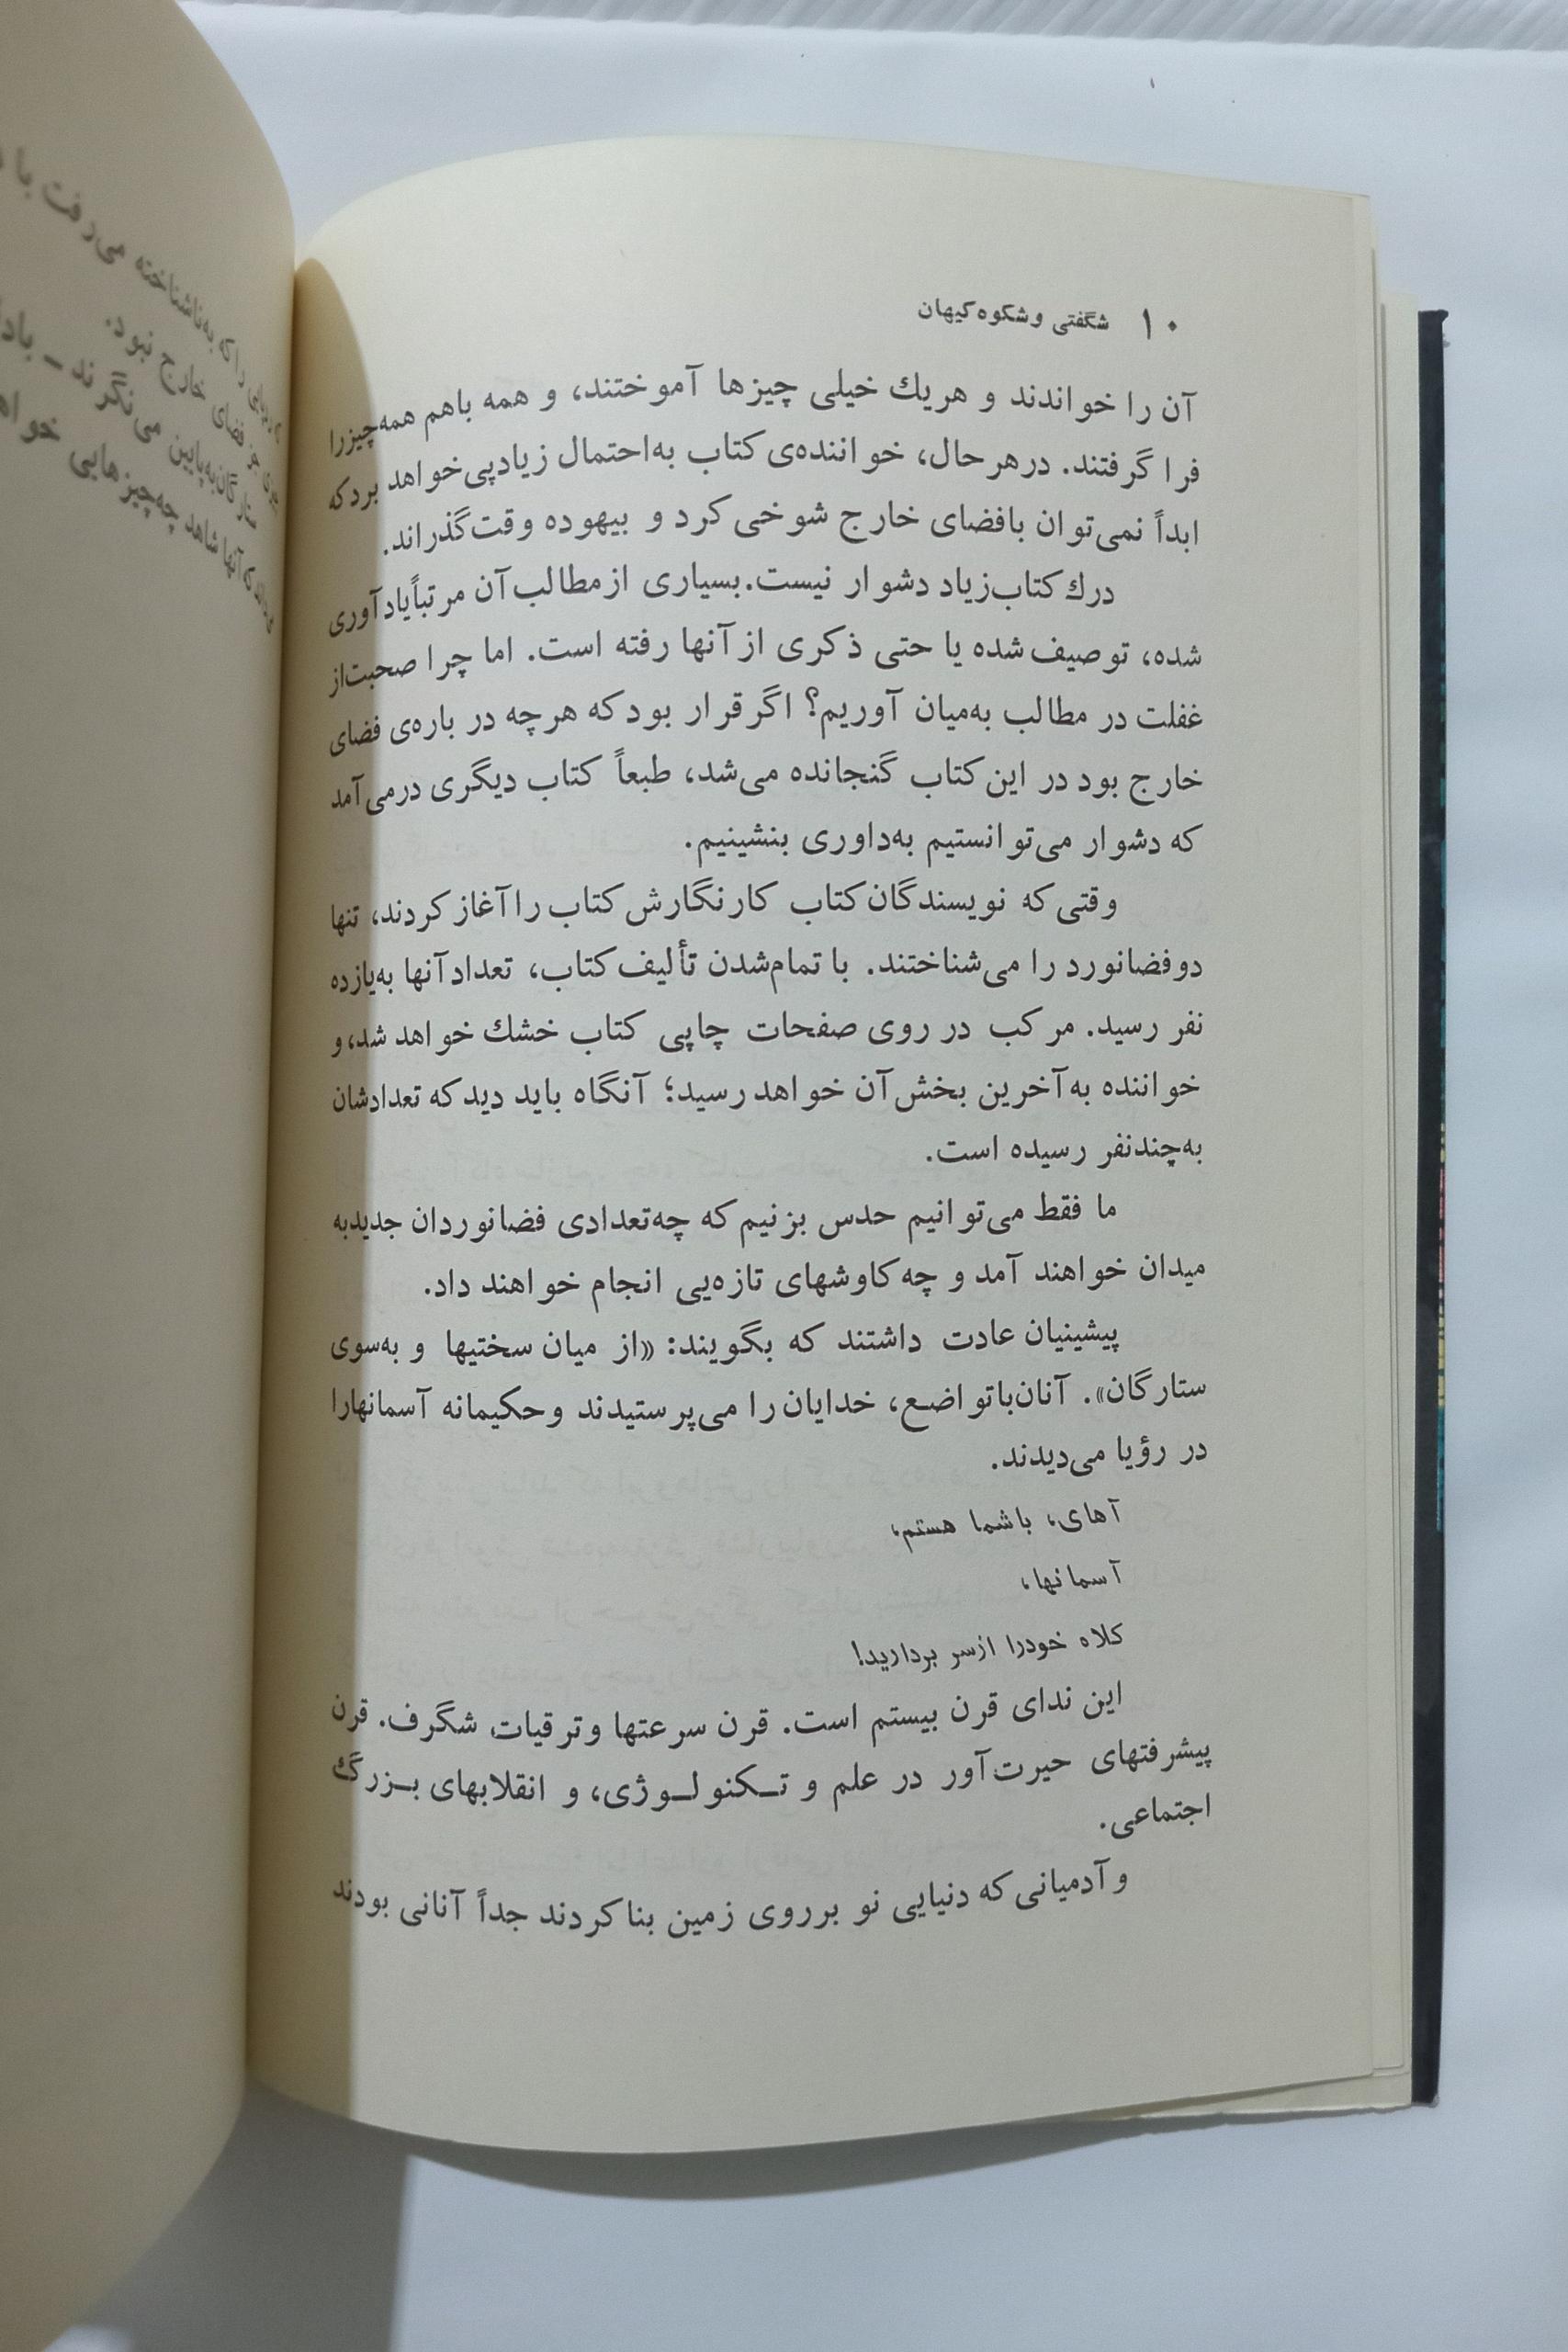 ۱۰ شگفتی و شکوه کیهان
آن را خواندند و هریك خیلی چیزها آموختند، و همه باهم همه‌چیزرا
فرا گرفتند. درهرحال، خواننده‌ی کتاب به‌احتمال زیادپی‌خواهد بردکه
ابداً نمی‌توان بافضای خارج شوخی کرد و بیهوده وقت‌گذراند.
درك کتاب‌زیاد دشوار نیست. بسیاری ازمطالب‌آن مرتباًیادآوری
شده، توصیف‌شده یا حتی ذکری ازآنها رفته است. اما چرا صحبت‌از
غفلت در مطالب به‌میان آوریم؟ اگرقرار بودکه هرچه در باره‌ی فضای
خارج بود در این‌کتاب گنجانده می‌شد، طبعاً کتاب دیگری درمی‌آمد
که دشوار می‌توانستیم به‌داوری بنشینیم.
وقتی‌که نویسندگان‌کتاب کارنگارش‌کتاب راآغازکردند، تنها
دوفضانورد را می‌شناختند. با تمام‌شدن تألیف‌کتاب، تعدادآنها به‌یازده
نفر رسید. مرکب در روی صفحات چاپی کتاب خشك خواهد شد، و
خواننده به‌آخرین بخش‌آن خواهدرسید؛ آنگاه باید دیدکه تعدادشان
به‌چندنفر رسیده است.
ما فقط می‌توانیم حدس بزنیم‌که چه‌تعدادی فضانوردان جدیدبه
میدان خواهند آمد و چه‌کاوشهای تازه‌یی انجام خواهند داد.
پیشینیان عادت داشتند که بگویند: «از میان سختیها و به‌سوی
ستارگان». آنان‌باتواضع، خدایان‌را می‌پرستیدند وحکیمانه آسمانهارا
در رؤیا می‌دیدند.
آهای، باشما هستم،
آسمانها،
کلاه خودرا ازسر بردارید!
این ندای قرن بیستم است. قرن سرعتها وترقیات شگرف. قرن
پیشرفتهای حیرت‌آور در علم و تـکنولـوژی، و انقلابهای بـزرگ
اجتماعی.
وآدمیانی‌که دنیایی نو برروی زمین بناکردند جداً آنانی بودند